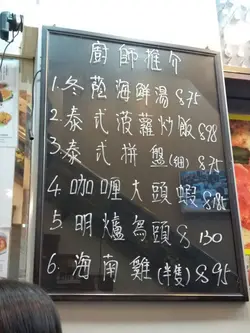 廚師推介
1.冬蔭海鮮湯 $75
2.泰式菠蘿炒飯 $98
3.泰式拼盤(細) $75
4 咖喱大頭蝦 $185
5.明爐烏頭 $130
6.海南雞(半隻) $95